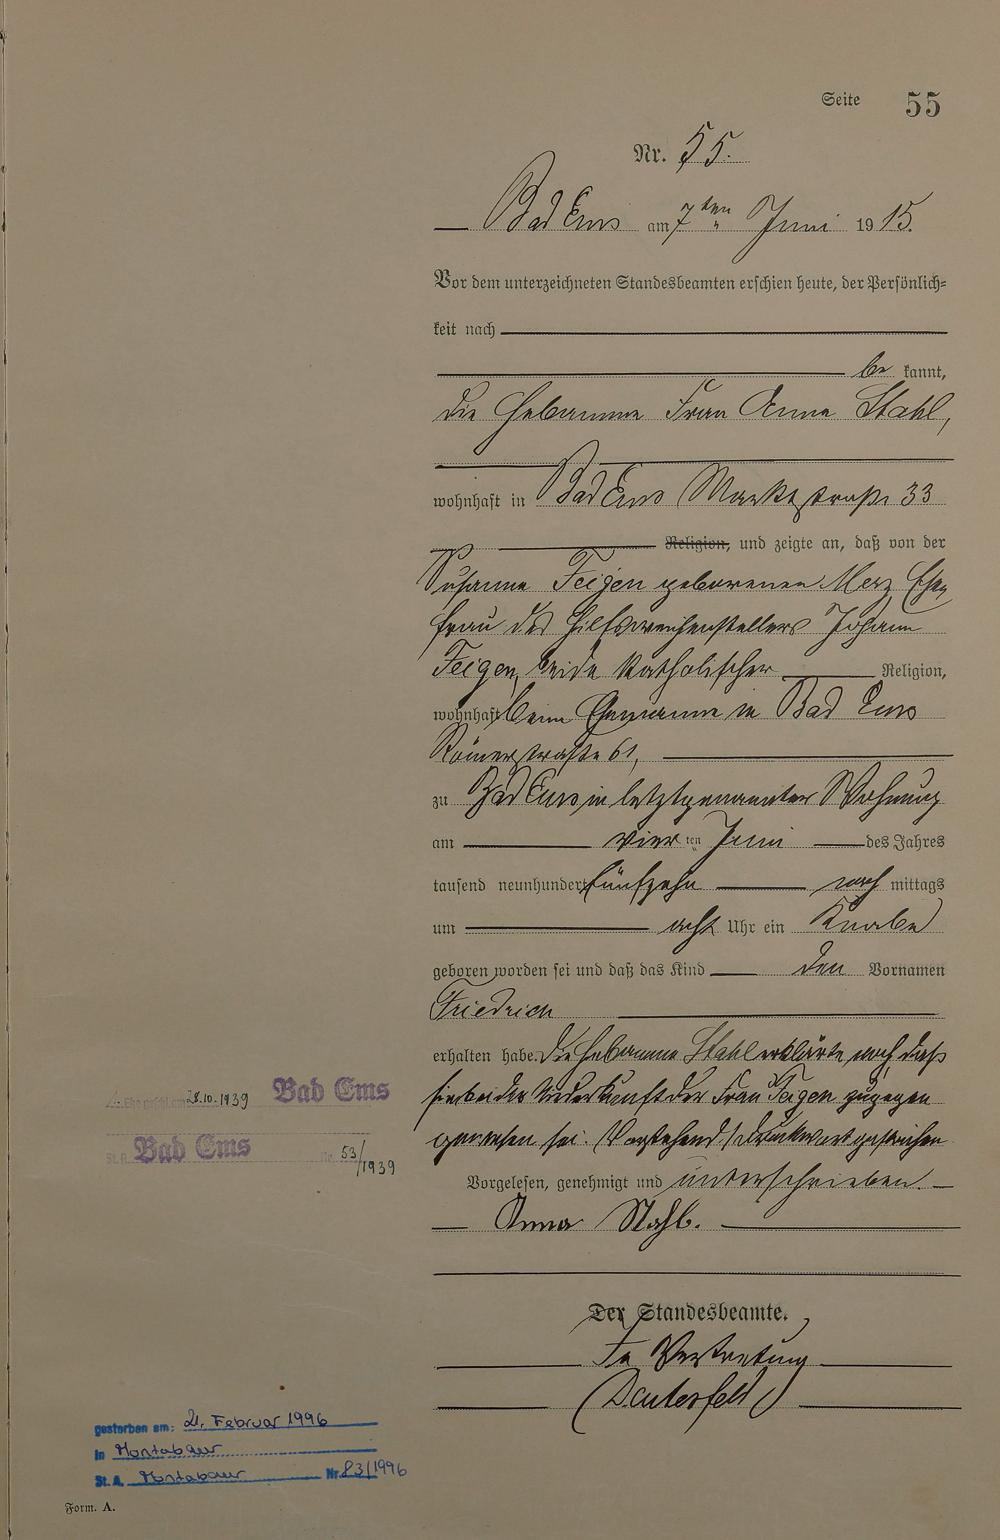 Seite 55
Nr. 55.
Bad Ems am 7ten Juni 1915.
Vor dem unterzeichneten Standesbeamten erschien heute, der Persönlich=
keit nach
be kannt,
die Hebamme Frau Anna Stahl,
wohnhaft in Bad Ems Marktstraße 33
Religion, und zeigte an, daß von der
Susanna Feigen geborenen Merz Ehe
frau des Hilfsweichenstellers Johann
Feigen, beide katholischer Religion,
wohnhaft beim Ehemanne in Bad Ems
Römerstraße 61,
zu Bad Ems in letztgenannter Wohnung
am vier ten Juni des Jahres
tausend neunhundert fünfzehn nach mittags
um acht Uhr ein Knabe
geboren worden sei und daß das Kind den Vornamen
Friedrich
erhalten habe. Die Hebamme Stahl erklärte noch, daß
sie bei der Niederkunft der Frau Feigen zugegen
gewesen sei. Vorstehend 1 Druckwort gestrichen
Vorgelesen, genehmigt und unterschrieben.
Anna Stahl.
Der Standesbeamte.
In Vertretung
28.10.1939 Bad Ems
St. A. Bad Ems Nr. 53/1939
gestorben am: 21. Februar 1996
in Montabaur
St. A. Montabaur Nr. 83/1996
Form. A.